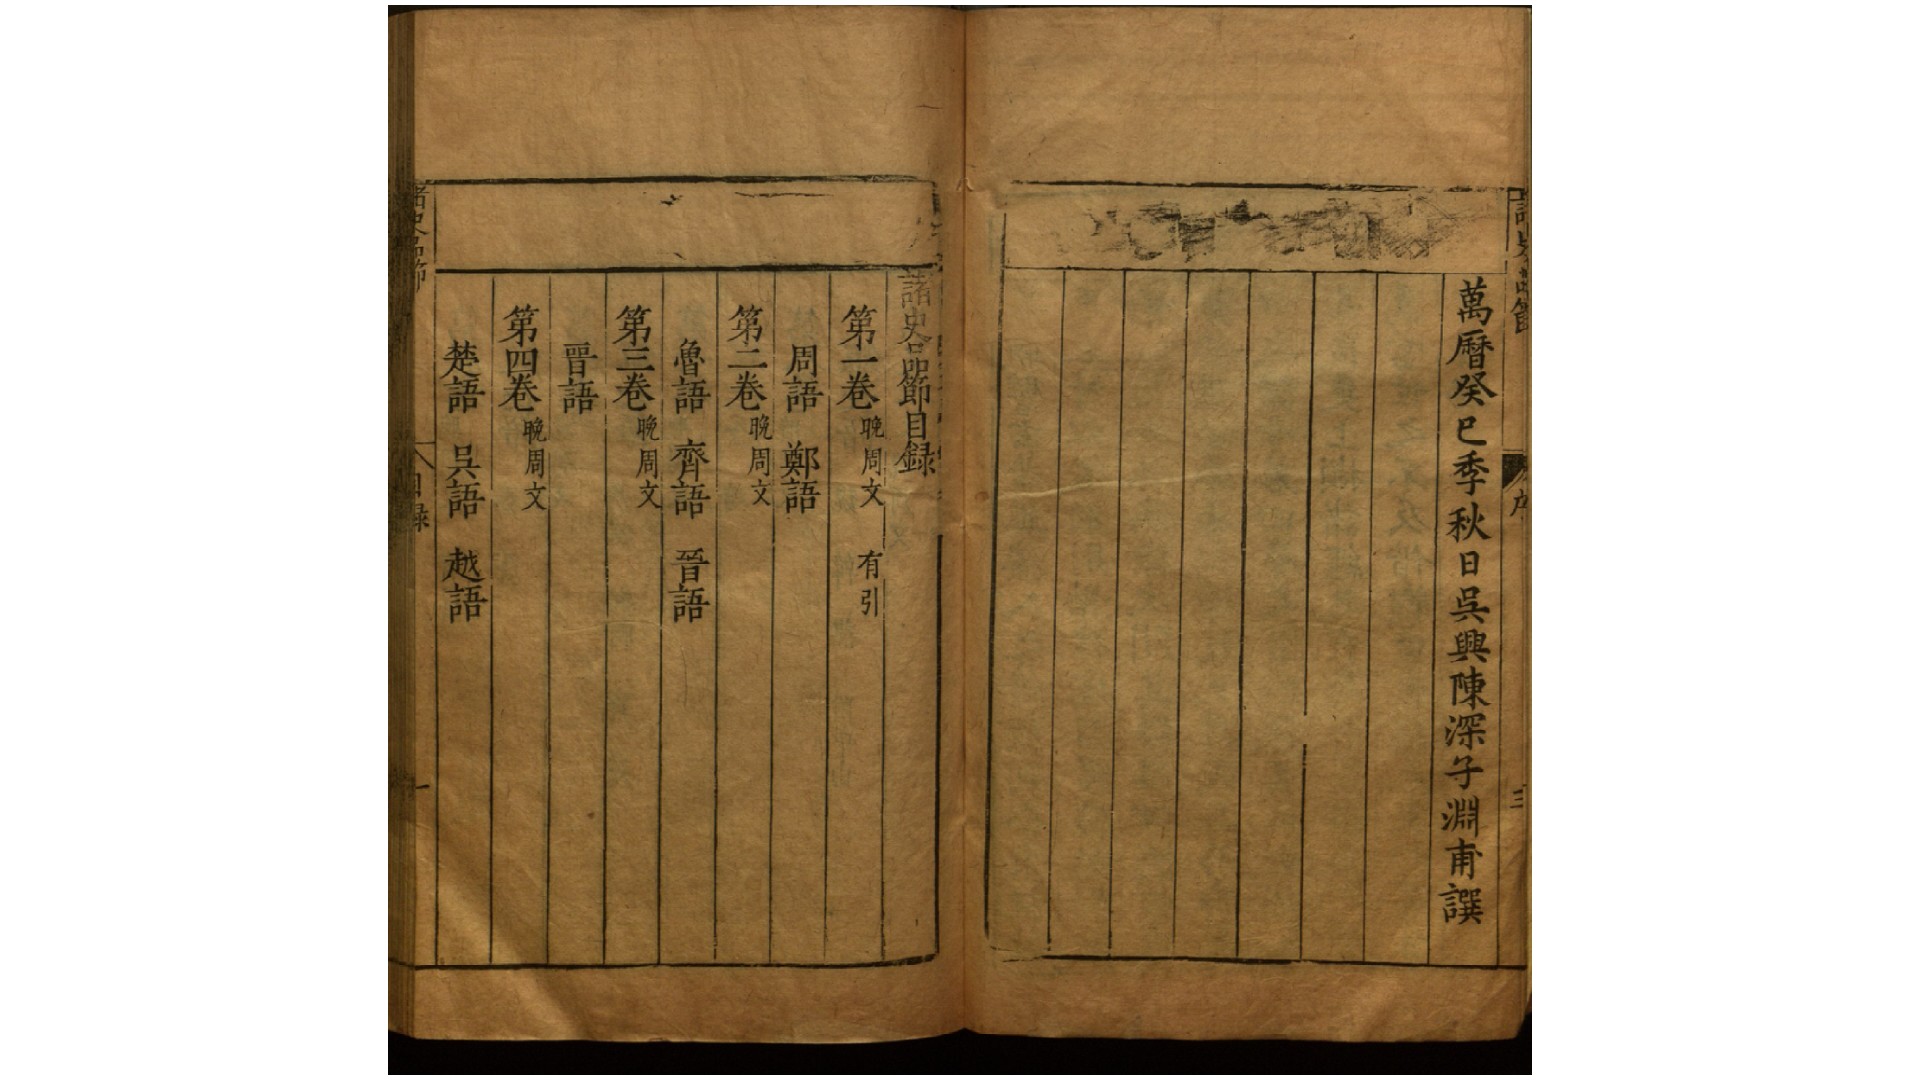 諸史品節
序
三
萬曆癸巳季秋日吳興陳深子淵甫譔
諸史品節目録
第一卷 晚周文 有引
周語 鄭語
第二卷 晚周文
魯語 齊語 晉語
第三卷 晚周文
晉語
第四卷 晚周文
楚語 吳語 越語
諸史品節
目録
一